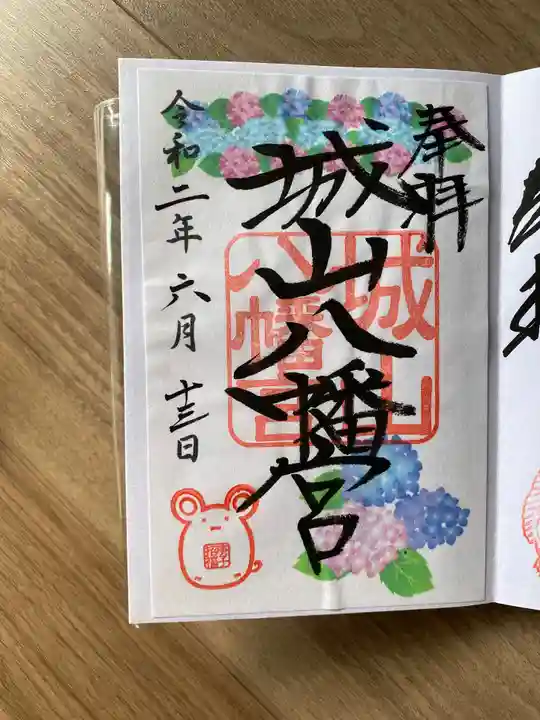 奉拝
城山八幡宮
城山
八幡宮
令和二年六月十三日